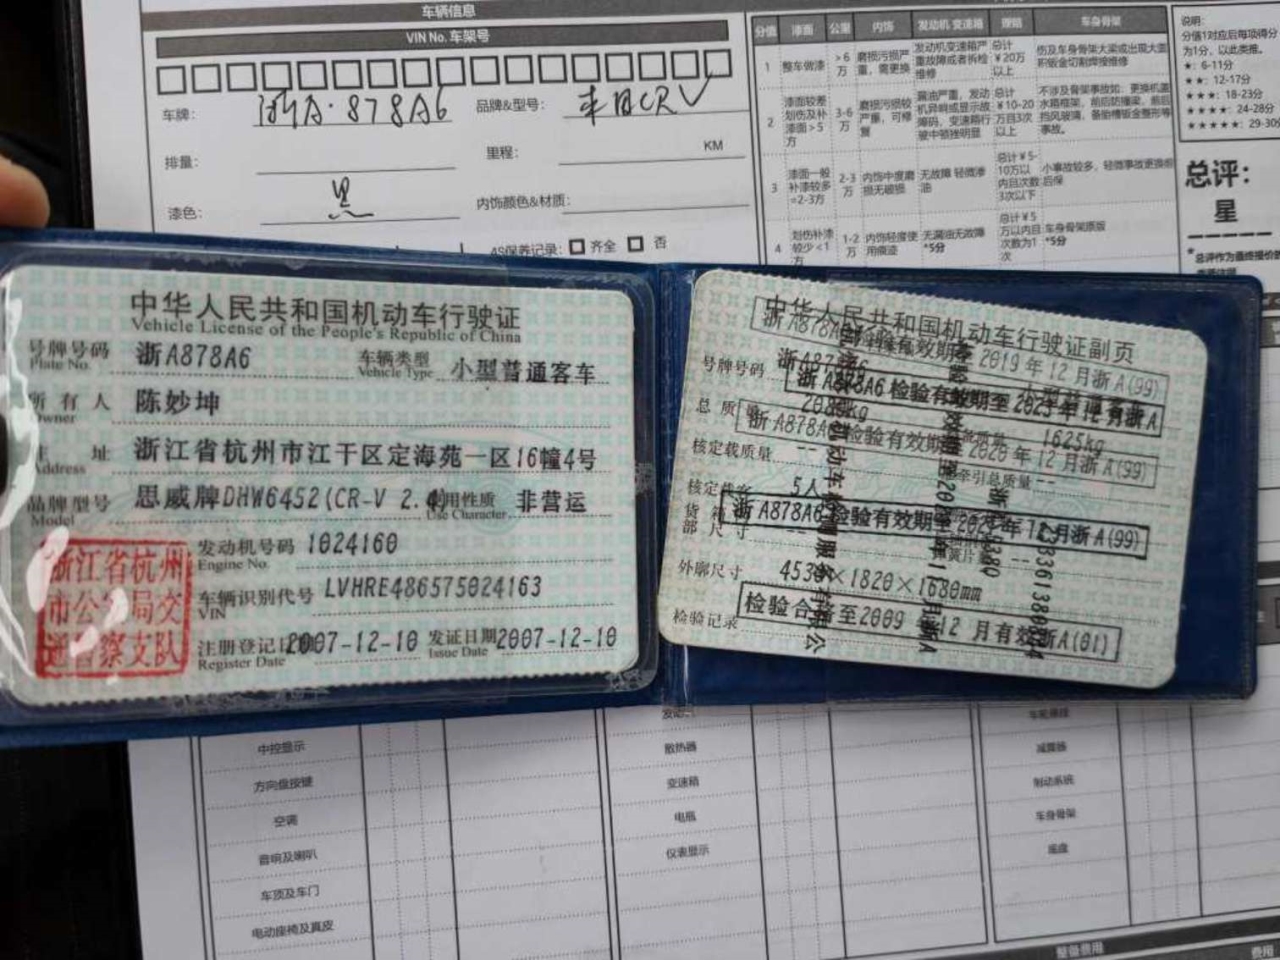 车辆信息
VIN No. 车架号
车牌: 浙A·878A6 品牌&型号: 本田CRV
排量: 里程: KM
漆色: 黑 内饰颜色&材质:
4S保养记录: 齐全 否
分值 漆面 公里 内饰 发动机 变速箱 车身骨架
1 整车做漆 >6万 磨损污损严重，需更换 发动机变速箱严重故障或者拆检维修 总计¥20万以上 伤及车身骨架大梁或出现大面积钣金切割焊接维修
2 漆面较差 划伤及补漆面>5方 3-6万 磨损污损较严重，可修复 漏油严重，发动机异响或显示故障码，变速箱行驶中顿挫明显 总计¥10-20万
3 漆面一般 补漆较多=2-3方 2-3万 内饰中度磨损无破损 无故障 轻微渗油 总计¥5-10万以内且次数3次以下 小事故较多，轻微事故更换
4 划伤补漆较少<1方 1-2万 内饰轻度使用痕迹 无漏油无故障 *5分 总计¥5万以内且次数为1次 车身骨架原版 *5分
说明:
分值1对应后每项得分
为1分，以此类推。
★: 6-11分
★★: 12-17分
★★★: 18-23分
★★★★: 24-28分
★★★★★: 29-30
总评:
星
中华人民共和国机动车行驶证
Vehicle License of the People's Republic of China
号牌号码 浙A878A6 车辆类型 小型普通客车
Plate No. Vehicle Type
所有人 陈妙坤
Owner
住址 浙江省杭州市江干区定海苑一区16幢4号
Address
品牌型号 思威牌DHW6452(CR-V 2.4) 使用性质 非营运
Model Use Character
发动机号码 1024160
Engine No.
车辆识别代号 LVHRE486575024163
VIN
注册登记日期 2007-12-10 发证日期 2007-12-10
Register Date Issue Date
浙江省杭州
市公安局交
通警察支队
中华人民共和国机动车行驶证副页
号牌号码 浙A878A6
检验有效期至2019年12月浙A(99)
浙A878A6检验有效期至
总质量 1625kg
浙A878A6检验有效期至2020年12月浙A(99)
核定载质量 -- 牵引总质量 --
核定载客 5人
浙A878A6检验有效期至 年12月浙A(99)
外廓尺寸 ×1820×1680mm
检验记录 检验合格至2009年12月有效浙A(01)
中控显示 散热器 减震器
方向盘按键 变速箱 制动系统
空调 电瓶 车身骨架
音响及喇叭 仪表显示 底盘
车顶及车门
电动座椅及真皮
整备费用 费用